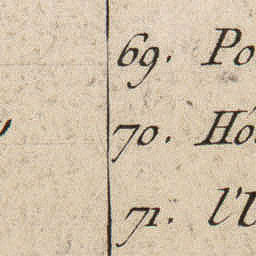 69. Po
70. Hó
71. l'U